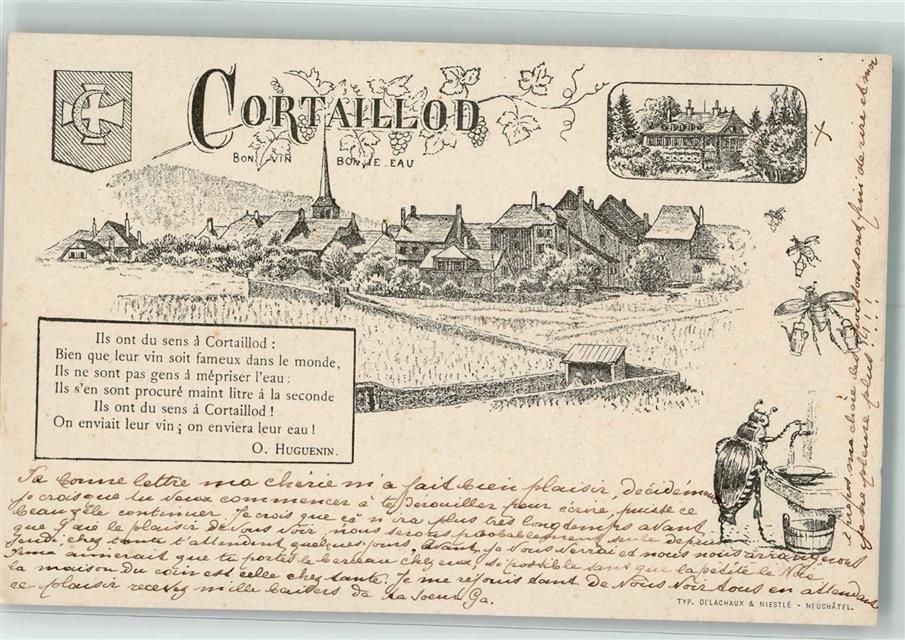 CORTAILLOD
BON VIN BONNE EAU
Ils ont du sens à Cortaillod :
Bien que leur vin soit fameux dans le monde,
Ils ne sont pas gens à mépriser l'eau ;
Ils s'en sont procuré maint litre à la seconde
Ils ont du sens à Cortaillod !
On enviait leur vin ; on enviera leur eau !
O. HUGUENIN.
Ta bonne lettre ma chérie m'a fait bien plaisir, décidément
je crois que tu veux commencer à te dérouiller pour écrire, puisse ce
beau zèle continuer. Je crois que ce n'ira plus très longtemps avant
que j'aie le plaisir de vous voir, nous serons probablement seule depuis
jeudi chez tante t'attendent quelques jours, avant, je vous verrai et nous nous arrangerons
aimerait que tu portes le berceau chez eux, si possible sans que la petite le
la maison du coin est celle chez tante. Je me rejouis tant de vous voir tous en attendant
ce plaisir recevez mille baisers de ta soeur Ga.
TYP. DELACHAUX & NIESTLÉ - NEUCHÂTEL.
ma chère les ont fini de rire et moi
pleure plus !!!!